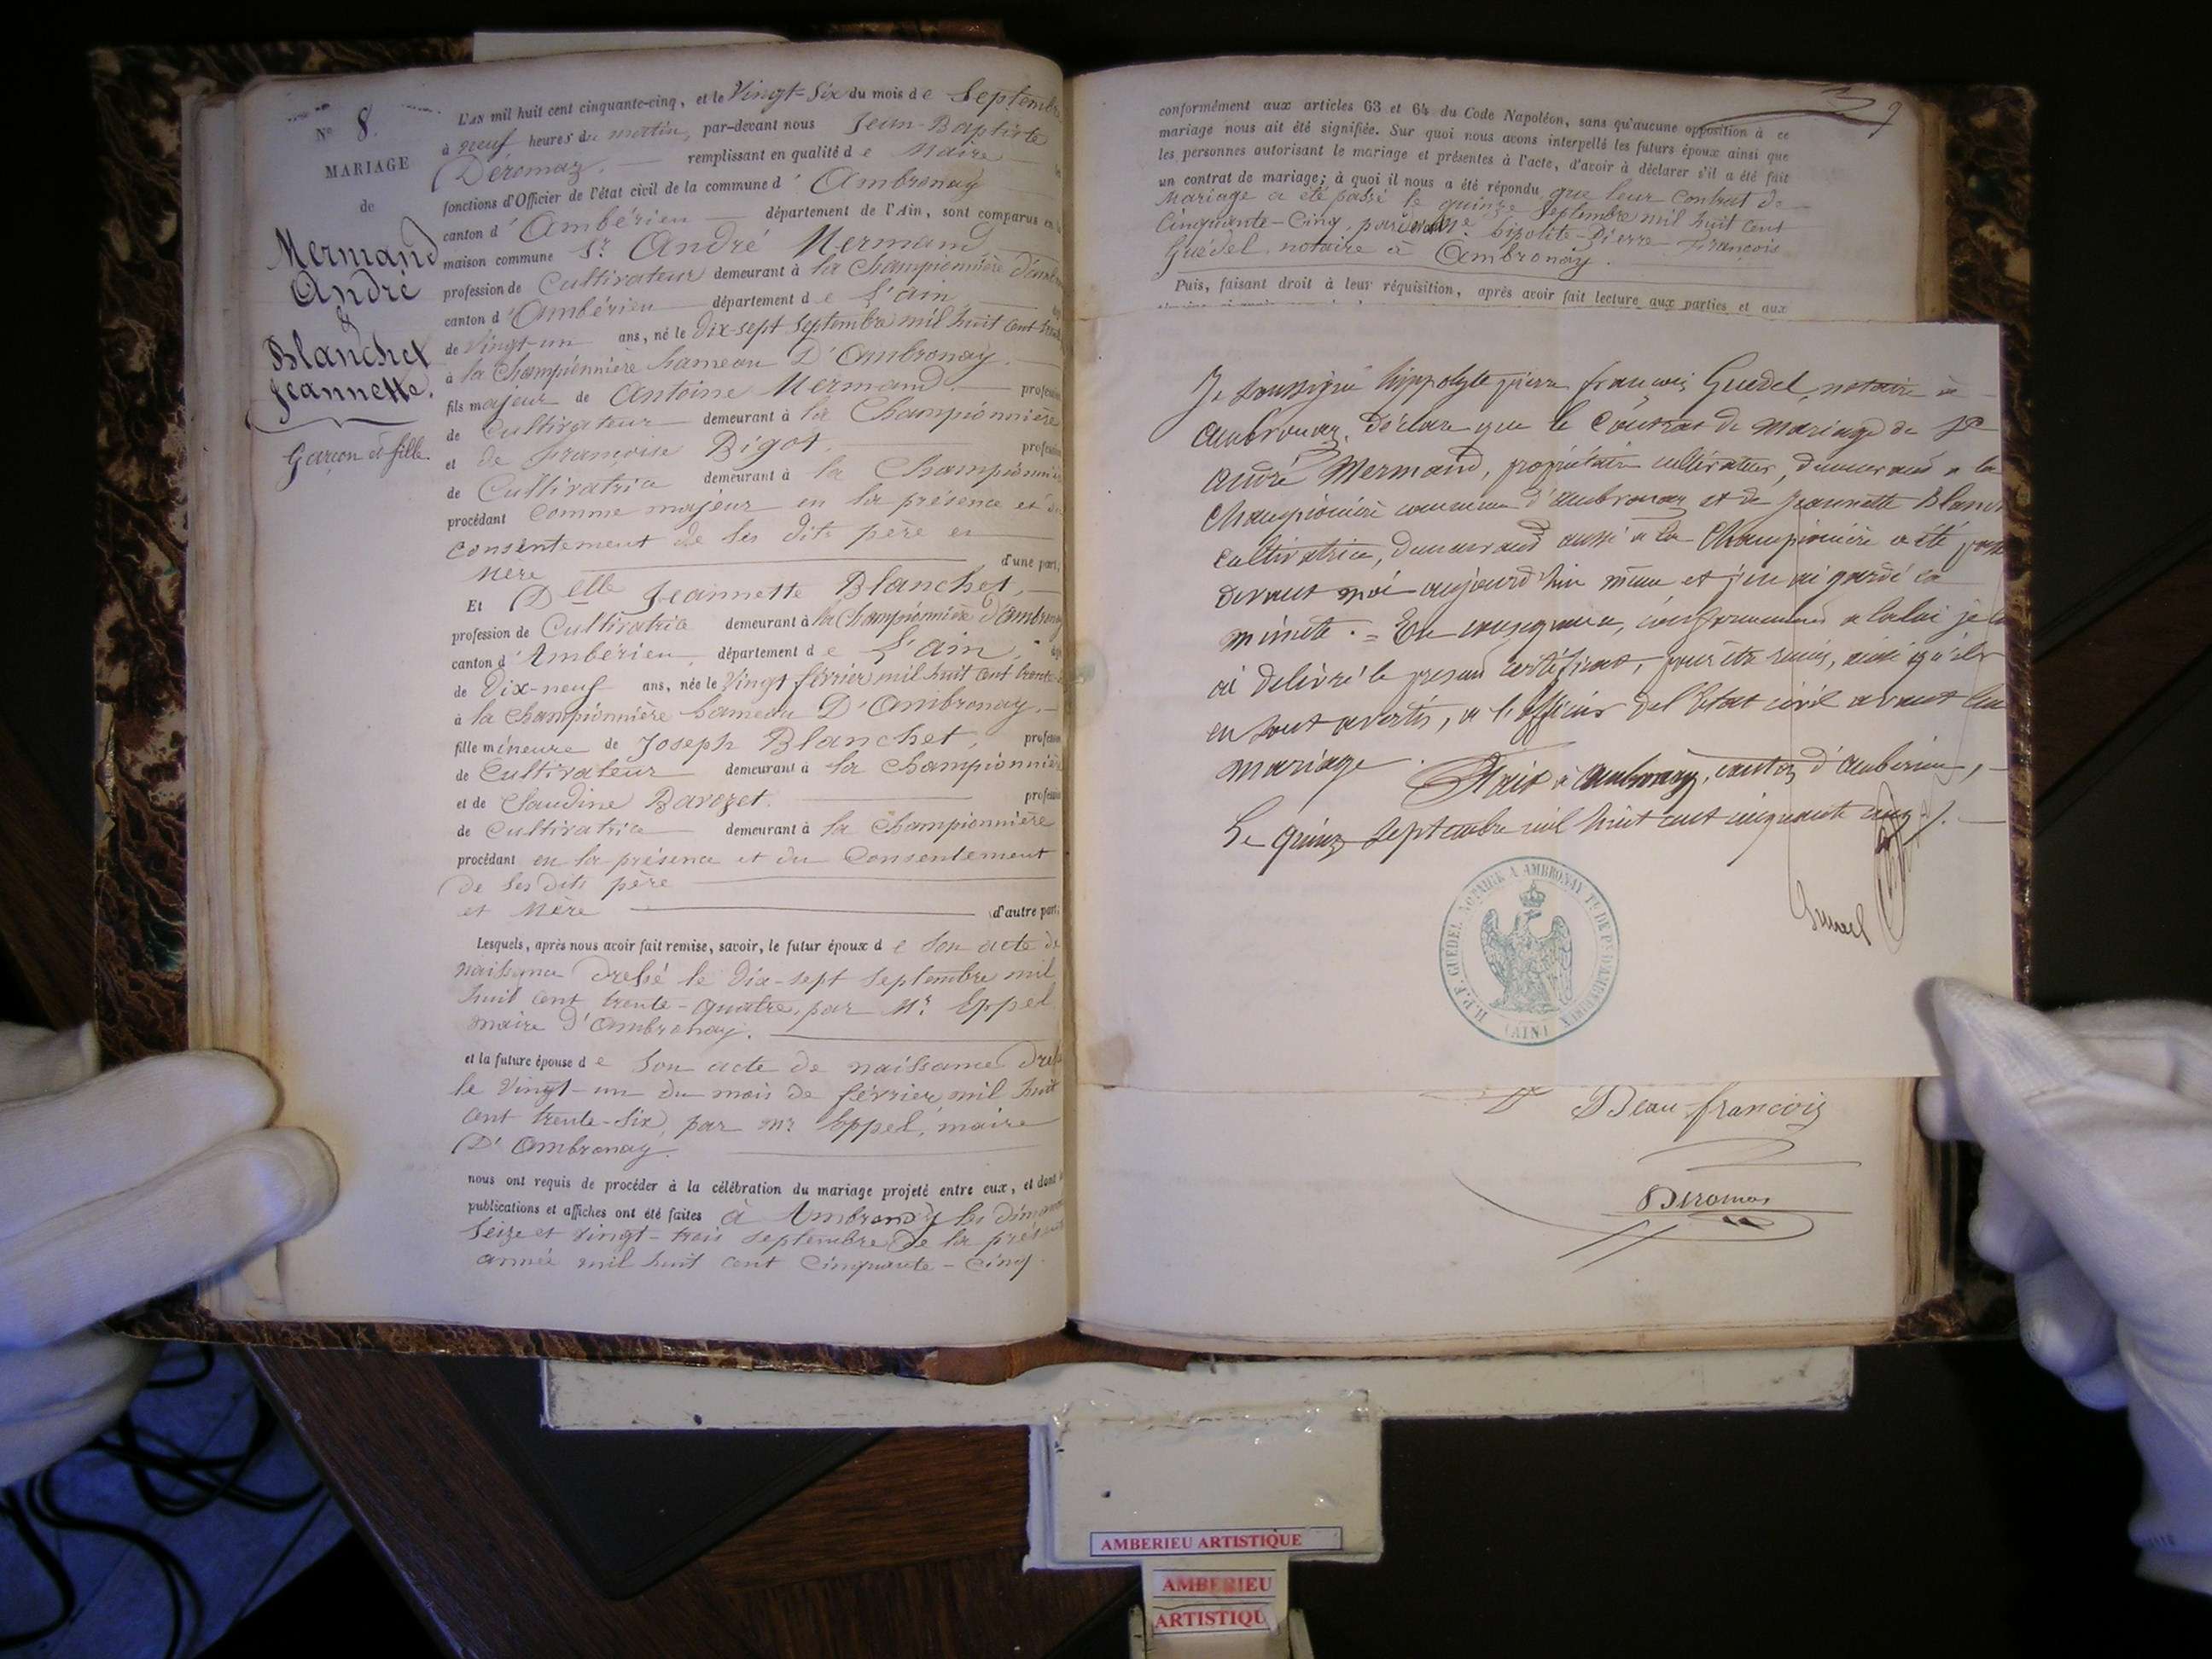 N° 8.
MARIAGE
de
Mermand
André
&
Blanchet
Jeannette.
Garçon et fille.
L'AN mil huit cent cinquante-cinq, et le Vingt-Six du mois de Septembre
à neuf heures du matin, par-devant nous Jean-Baptiste
Déromaz. remplissant en qualité de Maire
fonctions d'Officier de l'état civil de la commune d' Ambronay
canton d' Ambérieu département de l'Ain, sont comparus en la
maison commune Sr. André Mermand
profession de Cultivateur demeurant à la Championnière d'amb
canton d' Ambérieu département de L'ain
de Vingt-un ans, né le Dix-sept Septembre mil huit cent
à la Championnière hameau D'Ambronay.
fils majeur de Antoine Mermand. profession
de Cultivateur demeurant à la Championnière
et de Françoise Bigot. profession
de Cultivatrice demeurant à la Championnière
procédant Comme majeur en la présence et du
consentement de ses dits père et
Mère d'une part;
Et Delle Jeannette Blanchet,
profession de Cultivatrice demeurant à la Championnière d'ambronay
canton d' Ambérieu, département de L'ain,
de Dix-neuf ans, née le Vingt février mil huit cent trente
à la Championnière hameau D'Ambronay.
fille mineure de Joseph Blanchet, profession
de Cultivateur demeurant à la Championnière
et de Claudine Barozet. profession
de Cultivatrice demeurant à la Championnière
procédant en la présence et du Consentement
de ses dits père
et Mère d'autre part;
Lesquels, après nous avoir fait remise, savoir, le futur époux de son acte de
naissance dressé le Dix-sept Septembre mil
huit cent trente-quatre, par Mr. Eppel
maire D'Ambronay.
et la future épouse de son acte de naissance dressé
le Vingt-un du mois de février mil huit
cent trente-six, par Mr Eppel, maire
D'Ambronay.
nous ont requis de procéder à la célébration du mariage projeté entre eux, et dont
publications et affiches ont été faites à Ambronay les dimanches
Seize et vingt-trois septembre de la présente
année mil huit cent Cinquante-Cinq.
conformément aux articles 63 et 64 du Code Napoléon, sans qu'aucune opposition à ce
mariage nous ait été signifiée. Sur quoi nous avons interpellé les futurs époux ainsi que
les personnes autorisant le mariage et présentes à l'acte, d'avoir à déclarer s'il a été fait
un contrat de mariage; à quoi il nous a été répondu que leur contrat de
Mariage a été passé le quinze Septembre mil huit cent
Cinquante-Cinq, par hipolite-Pierre-François
Guédel, notaire à Ambronay.
Puis, faisant droit à leur réquisition, après avoir fait lecture aux parties et aux
Je soussigné hippolyte pierre françois Guedel, notaire à
Ambronay, déclare que le Contrat de mariage de Sr
André Mermand, propriétaire cultivateur, demeurant a la
Championière commune d'ambronay et de Jeannette Blanch
cultivatrice, demeurant aussi a la Championière a été passé
devant moi aujourd'hui même et j'en ai gardé la
minute. = En conséquence, conformément a la loi je
ai délivré le présent certificat, pour être remis, ainsi qu'ils
en sont avertis, a l'officier de l'Etat civil avant leur
mariage. Fait à Ambronay, canton d'ambérieu,
Le quinze septembre mil huit cent cinquante cinq.
Guedel
H.P.F. GUEDEL NOTAIRE A AMBRONAY Tn DE Px D'AMBERIEUX
(AIN)
Beau françois
Deromas
AMBERIEU ARTISTIQUE
AMBERIEU
ARTISTIQU